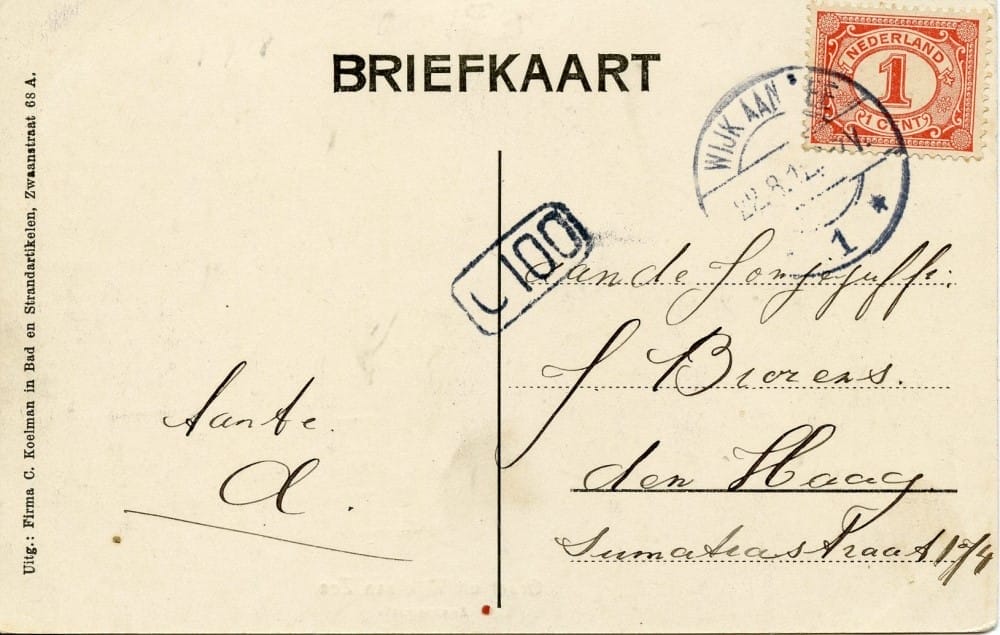 BRIEFKAART
NEDERLAND
1
1 CENT
WIJK AAN ZEE
22.8.12.
1
100
Aan de Jongejuffr:
J. Biorens.
den Haag.
Sumatrastraat
Tante.
A.
Uitg.: Firma C. Koelman in Bad en Strandartikelen, Zwanstraat 68 A.